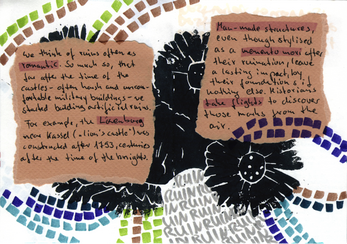 We think of ruins often as
romantic. So much so, that
far after the time of the
castles - often harsh and uncom-
fortable military buildings - we
started building artificial ruins.
For example, the Löwenburg
near Kassel („lion's castle") was
constructed after 1793, centuries
after the time of the knights.
Man-made structures,
even though stylised
as a memento mori after
their ruination, leave
a lasting impact, by
their foundation if
nothing else. Historians
take flights to discover
those marks from the
air.
RUIN RUIN
RUIN RUIN
RUIN RUIN
RUIN RUIN